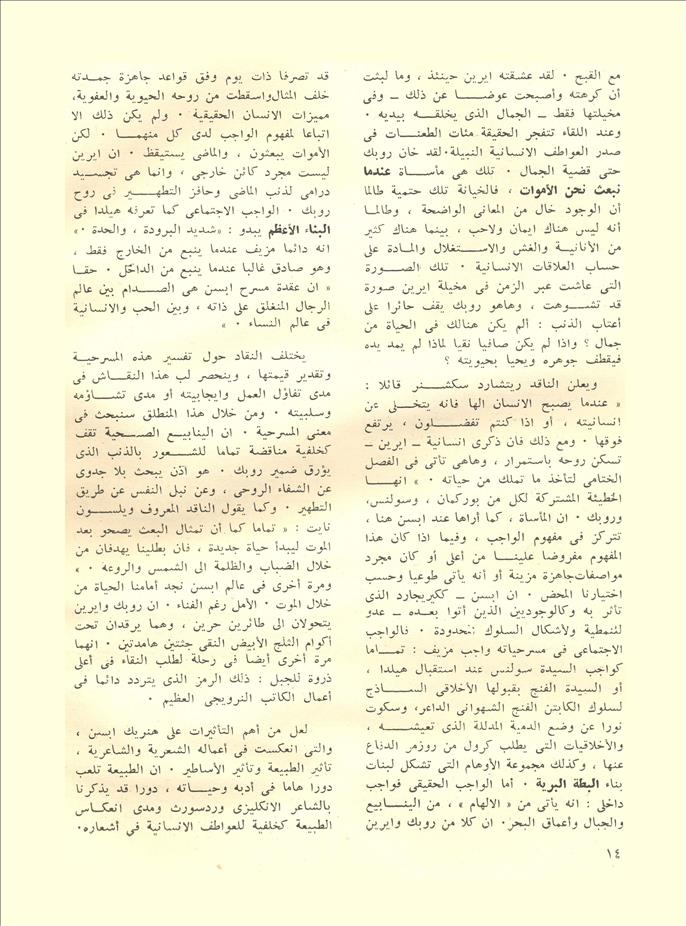 مع القبح ٠ لقد عشقته ايرين حينئذ ، وما لبثت
أن كرهته وأصبحت عوضا عن ذلك ــ وفى
مخيلتها فقط ــ الجمال الذى يخلقه بيديه ٠
وعند اللقاء تتفجر الحقيقة مئات الطعنات فى
صدر العواطف الانسانية النبيلة٠لقد خان روبك
حتى قضية الجمال ٠ تلك هى مأساة عندما
نبعث نحن الأموات ، فالخيانة تلك حتمية طالما
أن الوجود خال من المعانى الواضحة ، وطالما
أنه ليس هناك ايمان ولاحب ، بينما هناك كثير
من الأنانية والغش والاستغلال والمادة على
حساب العلاقات الانسانية ٠ تلك الصورة
التى عاشت عبر الزمن فى مخيلة ايرين صورة
قد تشوهت ، وهاهو روبك يقف حائرا على
أعتاب الذنب : ألم يكن هنالك فى الحياة من
جمال ؟ واذا لم يكن صافيا نقيا لماذا لم يمد يده
فيقطف جوهره ويحيا بحيويته ؟
ويعلن الناقد ريتشارد سكشنر قائلا :
« عندما يصبح الانسان الها فانه يتخلى عن
انسانيته ، أو اذا كنتم تفضلون ، يرتفع
فوقها ٠ ومع ذلك فان ذكرى انسانية ــ ايرين ــ
تسكن روحه باستمرار ، وهاهى تأتى فى الفصل
الختامى لتأخذ ما تملك من حياته ٠ » انها
الخطيئة المشتركة لكل من بوركمان ، وسولنس،
وروبك ٠ ان المأساة ، كما أراها عند ابسن هنا ،
تتركز فى مفهوم الواجب ، وفيما اذا كان هذا
المفهوم مفروضا علينا من أعلى أو كان مجرد
مواصفات جاهزة مزينة أو أنه يأتى طوعيا وحسب
اختيارنا المحض ٠ ان ابسن ــ ككيريجارد الذى
تأثر به وكالوجوديين الذين أتوا بعده ــ عدو
للنمطية ولأشكال السلوك المحدودة ٠ فالواجب
الاجتماعى فى مسرحياته واجب مزيف : تماما
كواجب السيدة سولنس عند استقبال هيلدا ،
أو السيدة الفنج بقبولها الأخلاقى الساذج
لسلوك الكابتن الفنج الشهوانى الداعر، وسكوت
نورا عن وضع الدمية المدللة الذى تعيشه ،
والأخلاقيات التى يطلب كرول من روزمر الدفاع
عنها ، وكذلك مجموعة الأوهام التى تشكل لبنات
بناء البطة البرية ٠ أما الواجب الحقيقى فواجب
داخلى : انه يأتى من « الالهام » ، من الينابيع
والجبال وأعماق البحر٠ ان كلا من روبك وايرين
قد تصرفا ذات يوم وفق قواعد جاهزة جمدته
خلف المثال واسقطت من روحه الحيوية والعفوية،
مميزات الانسان الحقيقية ٠ ولم يكن ذلك الا
اتباعا لمفهوم الواجب لدى كل منهما ٠ لكن
الأموات يبعثون ، والماضى يستيقظ ٠ ان ايرين
ليست مجرد كائن خارجى ، وانما هى تجسيد
درامى لذنب الماضى وحافز التطهير فى روح
روبك ٠ الواجب الاجتماعى كما تعرفه هيلدا فى
البناء الأعظم يبدو : «شديد البرودة ، والحدة ٠»
انه دائما مزيف عندما ينبع من الخارج فقط ،
وهو صادق غالبا عندما ينبع من الداخل ٠ حقا
« ان عقدة مسرح ابسن هى الصدام بين عالم
الرجال المنغلق على ذاته ، وبين الحب والانسانية
فى عالم النساء ٠ »
يختلف النقاد حول تفسير هذه المسرحية
وتقدير قيمتها ، وينحصر لب هذا النقاش فى
مدى تفاؤل العمل وايجابيته أو مدى تشاؤمه
وسلبيته ٠ ومن خلال هذا المنطلق سنبحث فى
معنى المسرحية ٠ ان الينابيع الصحية تقف
كخلفية مناقضة تماما للشعور بالذنب الذى
يؤرق ضمير روبك ٠ هو اذن يبحث بلا جدوى
عن الشفاء الروحى ، وعن نبل النفس عن طريق
التطهير ٠ وكما يقول الناقد المعروف ويلسون
نايت : « تماما كما أن تمثال البعث يصحو بعد
الموت ليبدأ حياة جديدة ، فان بطلينا يهدفان من
خلال الضباب والظلمة الى الشمس والروعة ٠ »
ومرة أخرى فى عالم ابسن نجد أمامنا الحياة من
خلال الموت ٠ الأمل رغم الفناء ٠ ان روبك وايرين
يتحولان الى طائرين حرين ، وهما يرقدان تحت
أكوام الثلج الأبيض النقى جثتين هامدتين ٠ انهما
مرة أخرى أيضا فى رحلة لطلب النقاء فى أعلى
ذروة للجبل : ذلك الرمز الذى يتردد دائما فى
أعمال الكاتب النرويجى العظيم ٠
لعل من أهم التأثيرات على هنريك ابسن ،
والتى انعكست فى أعماله الشعرية والشاعرية ،
تأثير الطبيعة وتأثير الأساطير ٠ ان الطبيعة تلعب
دورا هاما فى أدبه وحياته ، دورا قد يذكرنا
بالشاعر الانكليزى وردسورث ومدى انعكاس
الطبيعة كخلفية للعواطف الانسانية فى أشعاره٠
١٤